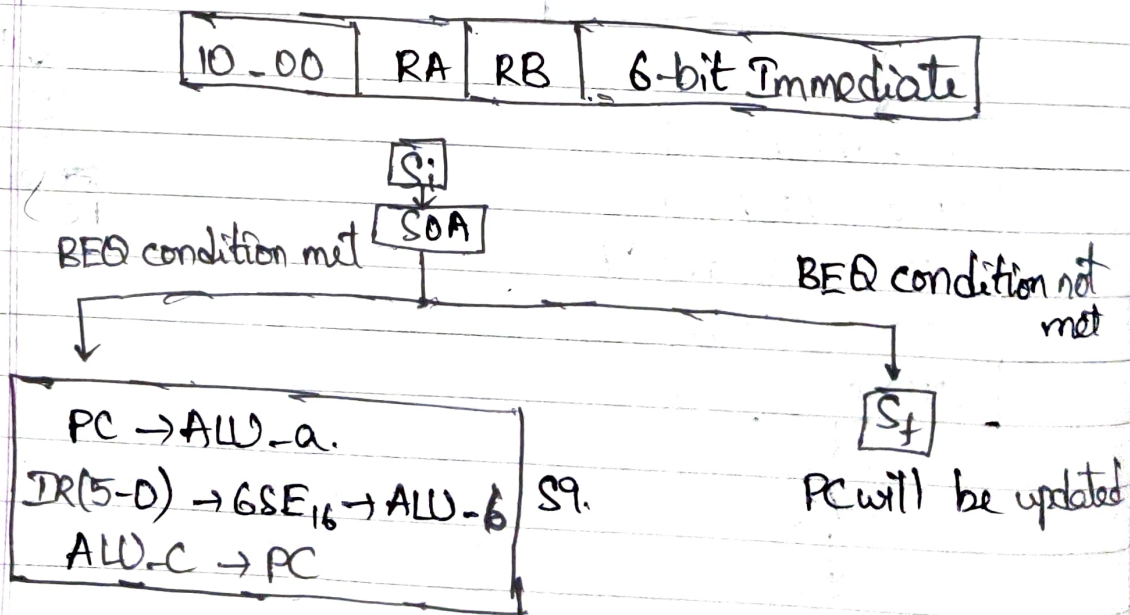 10_00 RA RB 6-bit Immediate
Si
S0A
BEQ condition met
BEQ condition not
met
PC → ALU_a.
IR(5-0) → 6SE16 → ALU_b
ALU_C → PC
S9.
Sf
PC will be updated